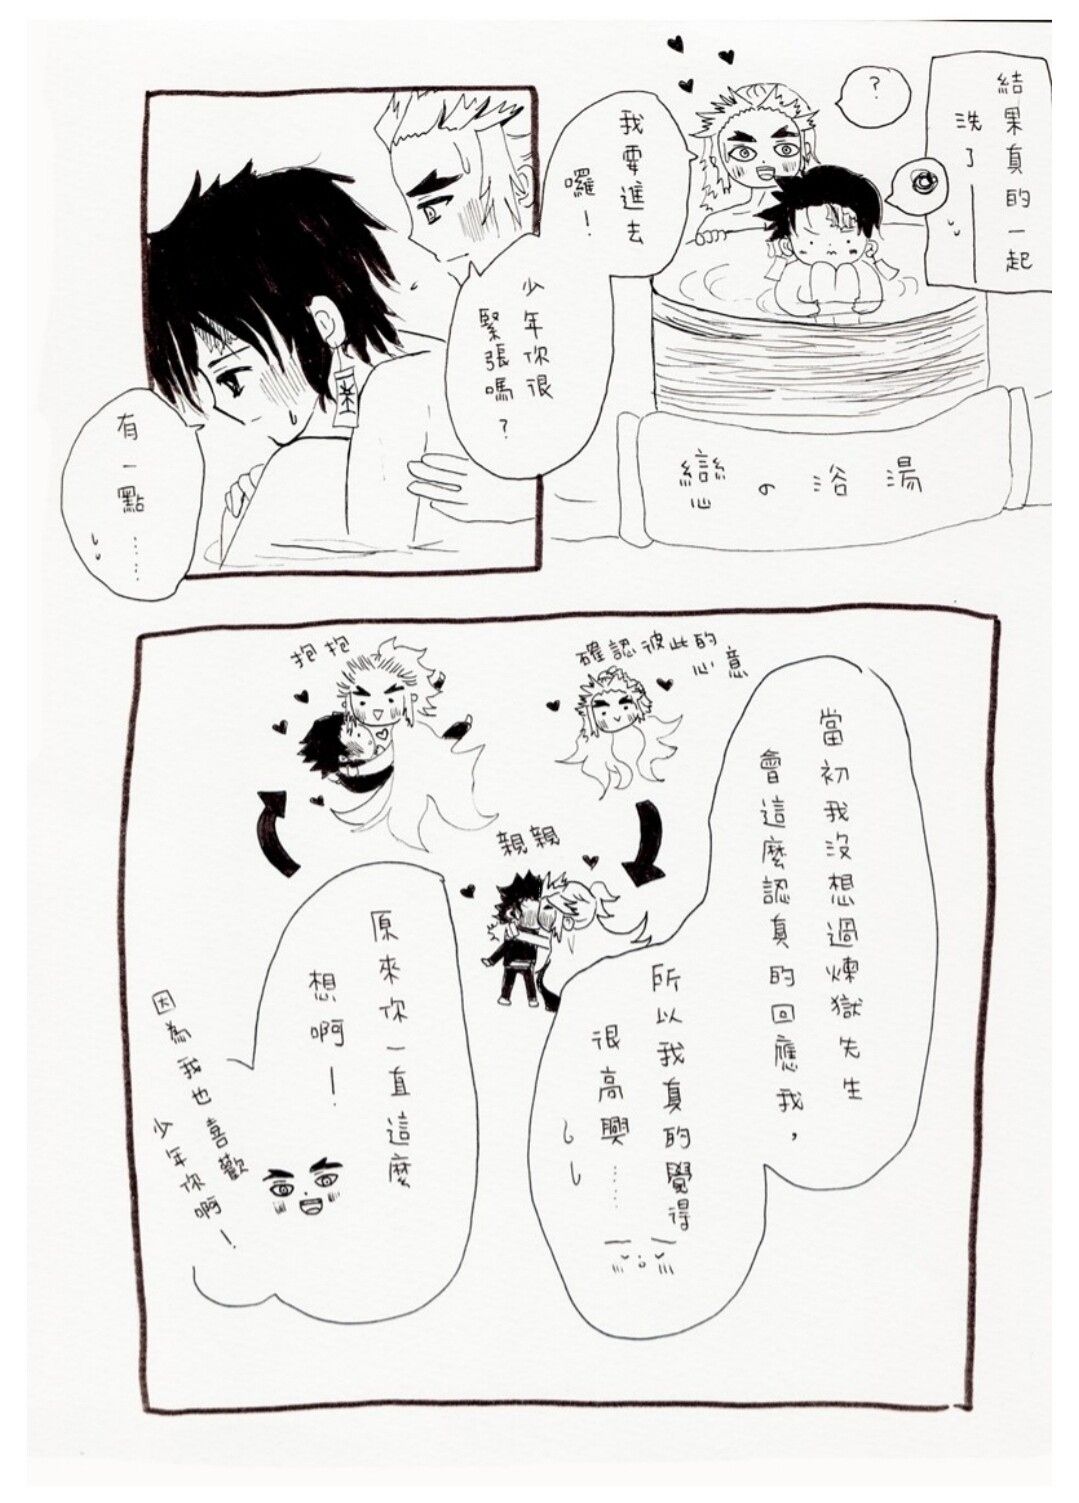 結果真的一起
洗了——
?
戀の浴湯
我要進去
囉!
少年你很
緊張嗎?
有一點……
確認彼此的
心意
親親
抱抱
當初我沒想過煉獄先生
會這麼認真的回應我,
所以我真的覺得
很高興……
原來你一直這麼
想啊!
因為我也喜歡
少年你啊!